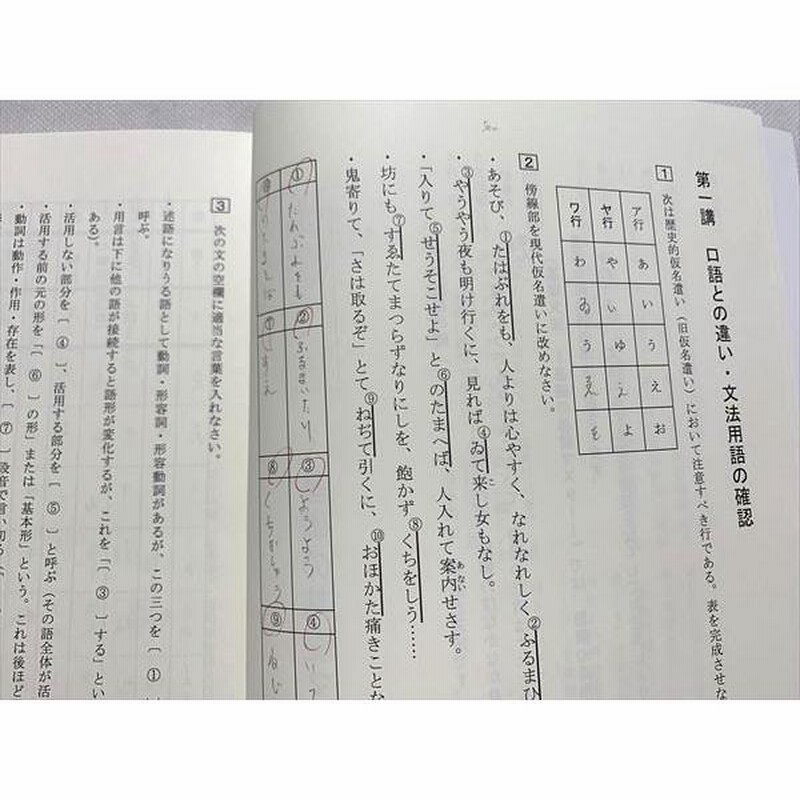 第一講 口語との違い・文法用語の確認
1 次は歴史的仮名遣い（旧仮名遣い）において注意すべき行である。表を完成させな
ア行 あ い う え お
ヤ行 や い ゆ え よ
ワ行 わ ゐ う ゑ を
2 傍線部を現代仮名遣いに改めなさい。
・あそび、①たはぶれをも、人よりは心やすく、なれなれしく②ふるまひ
・③やうやう夜も明け行くに、見れば④ゐて来し女もなし。
・「入りて⑤せうそこせよ」と⑥のたまへば、人入れて案内せさす。
・坊にも⑦すゑたてまつらずなりにしを、飽かず⑧くちをしう……
・鬼寄りて、「さは取るぞ」とて⑨ねぢて引くに、⑩おほかた痛きことな
① たわぶれをも
② ふるまいたり
③ ようよう
④ い
⑦ すえ
⑧ くちおしゅう
⑨ ねじ
3 次の文の空欄に適当な言葉を入れなさい。
・述語になりうる語として動詞・形容詞・形容動詞があるが、この三つを〔 ① 〕
呼ぶ。
・用言は下に他の語が接続すると語形が変化するが、これを「〔 ③ 〕する」とい
ある）。
・活用しない部分を〔 ④ 〕、活用する部分を〔 ⑤ 〕と呼ぶ（その語全体が活
・活用する前の元の形を「〔 ⑥ 〕の形」または「基本形」という。これは後ほど
・動詞は動作・作用・存在を表し、〔 ⑦ 〕段音で言い切る